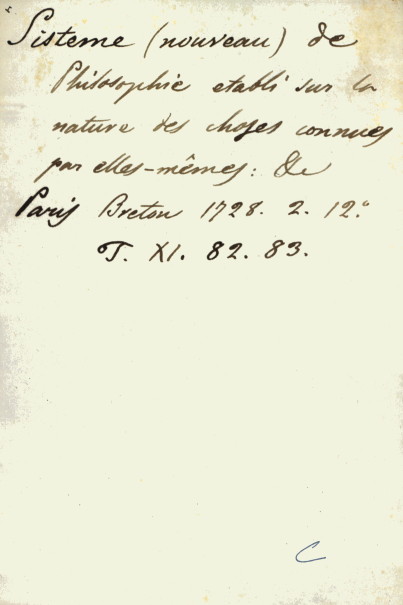 Sisteme (nouveau) de
Philosophie etabli sur la
nature des choses connues
par elles-mêmes: &c
Paris Breton 1728. 2. 12.º
T. XI. 82. 83.
C